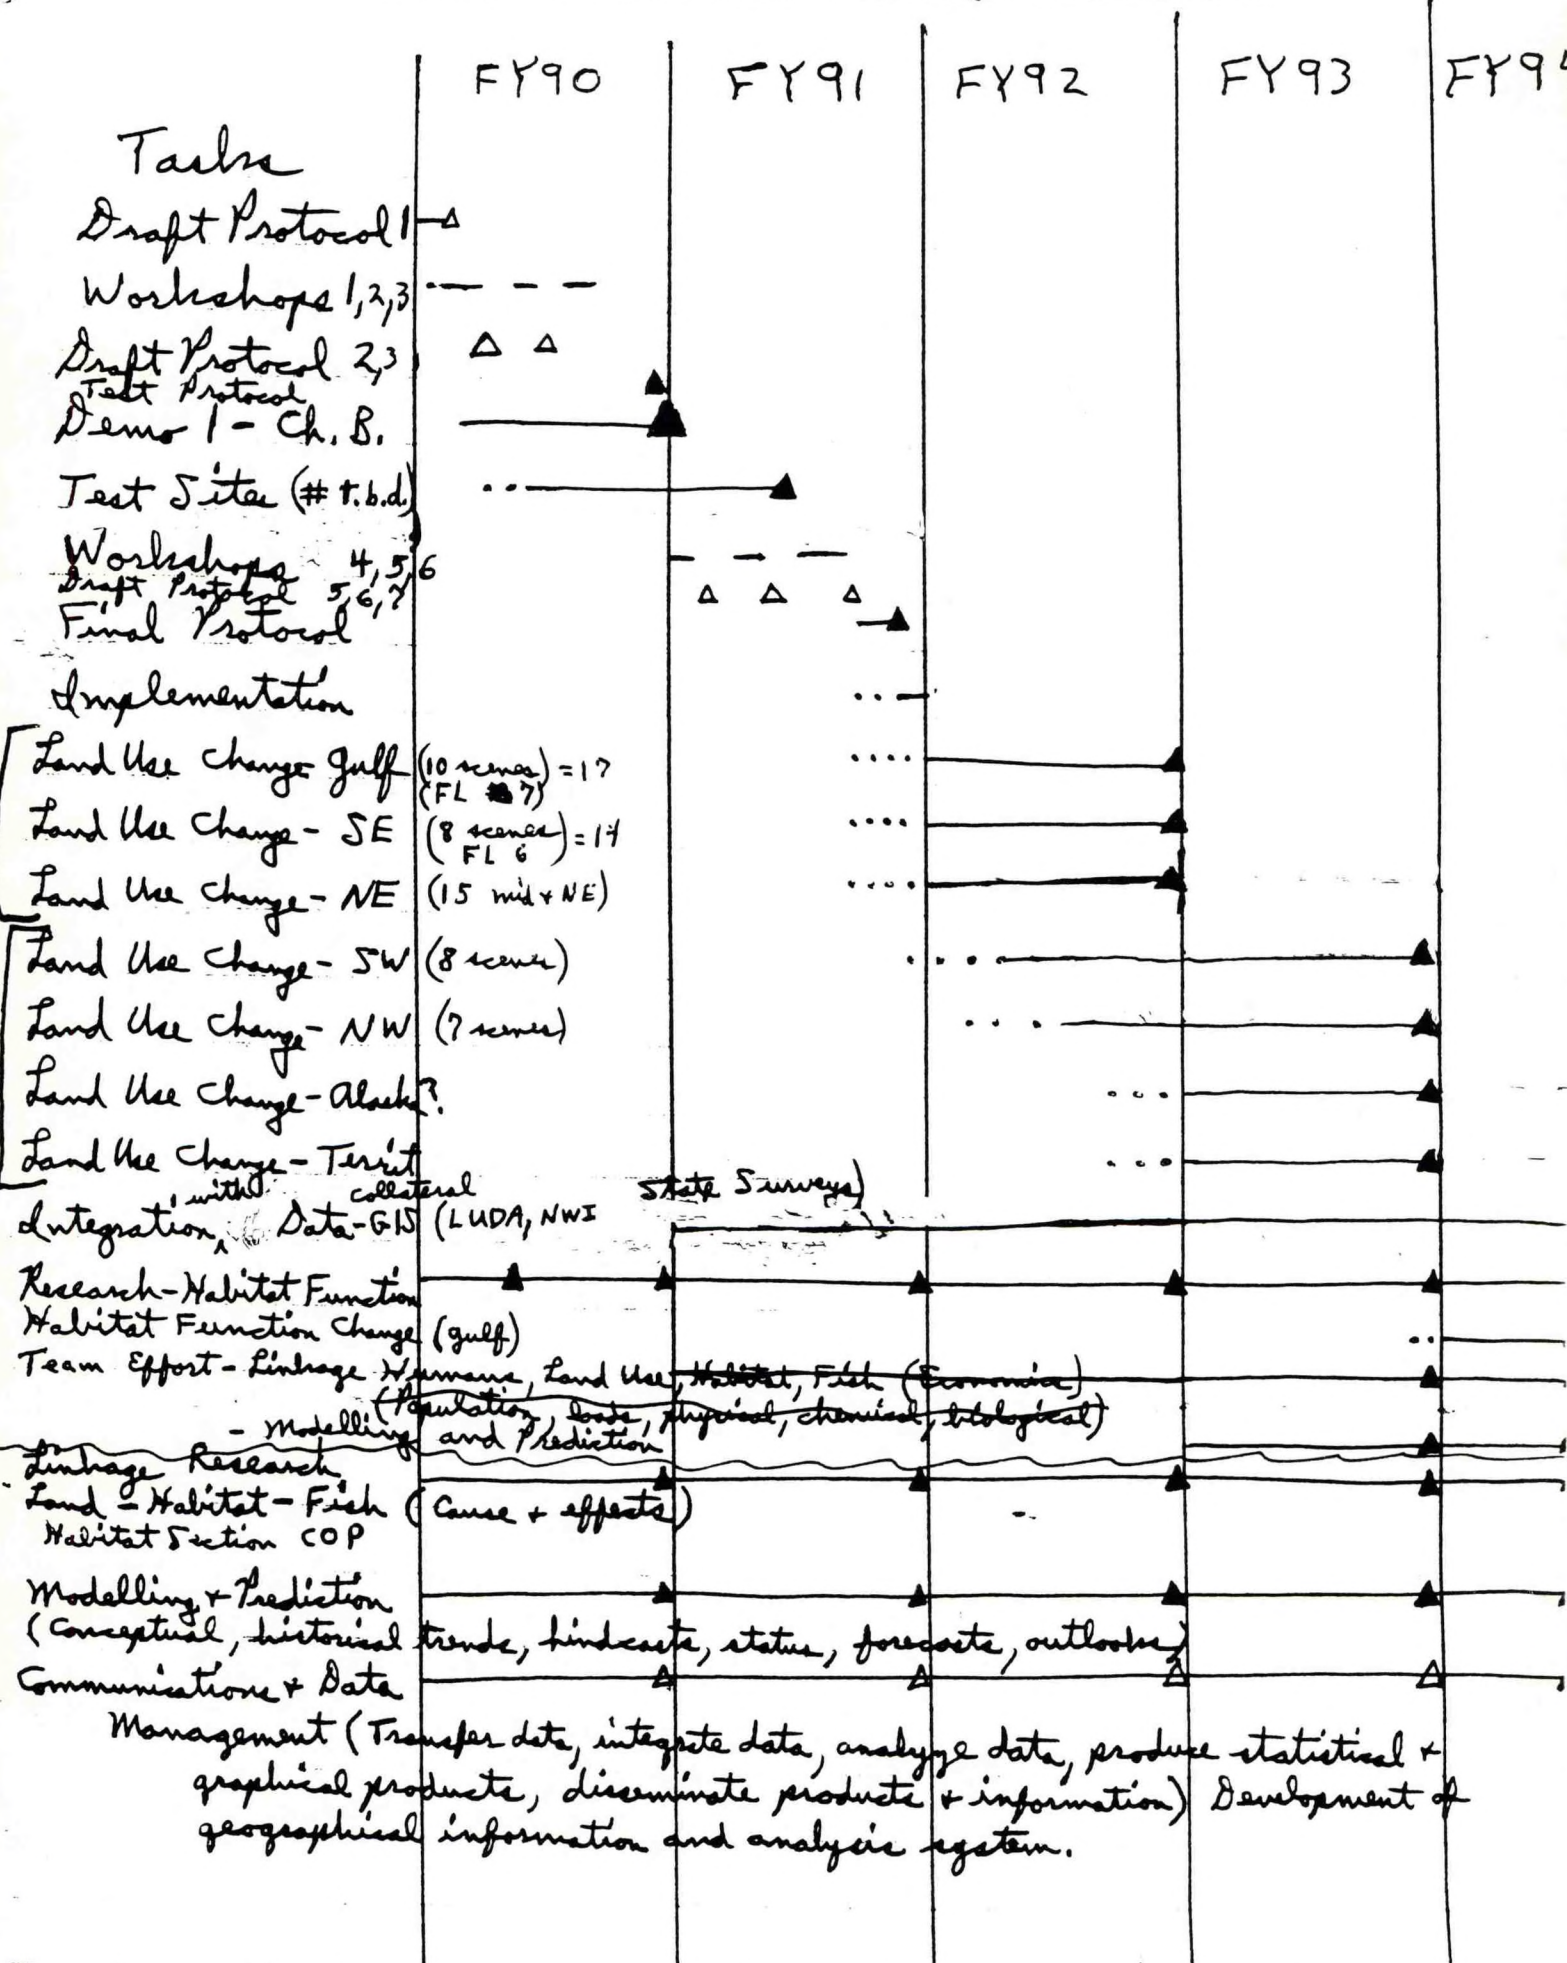 FY90 FY91 FY92 FY93 FY9
Tasks
Draft Protocol 1
Workshops 1,2,3
Draft Protocol 2,3
Test Protocol
Demo 1 - Ch. B.
Test Sites (# t.b.d.)
Workshops 4,5,6
Draft Protocol 5,6,7
Final Protocol
Implementation
Land Use Change Gulf (10 scenes) = 17
(FL 7)
Land Use Change - SE (8 scenes) = 14
FL 6
Land Use Change - NE (15 mid + NE)
Land Use Change - SW (8 scenes)
Land Use Change - NW (7 scenes)
Land Use Change - Alaska?
Land Use Change - Territ
with collateral State Surveys)
Integration, Data-GIS (LUDA, NWI
Research-Habitat Function
Habitat Function Change (gulf)
Team Effort - Linkage Humans, Land Use, Habitat, Fish (Economics)
(Population, loads, physical, chemical, biological)
- Modelling and Prediction
Linkage Research
Land - Habitat - Fish (Cause + effects)
Habitat Section COP
Modelling + Prediction
(Conceptual, historical trends, hindcasts, status, forecasts, outlooks)
Communications + Data
Management (Transfer data, integrate data, analyze data, produce statistical +
graphical products, disseminate products + information) Development of
geographical information and analysis system.